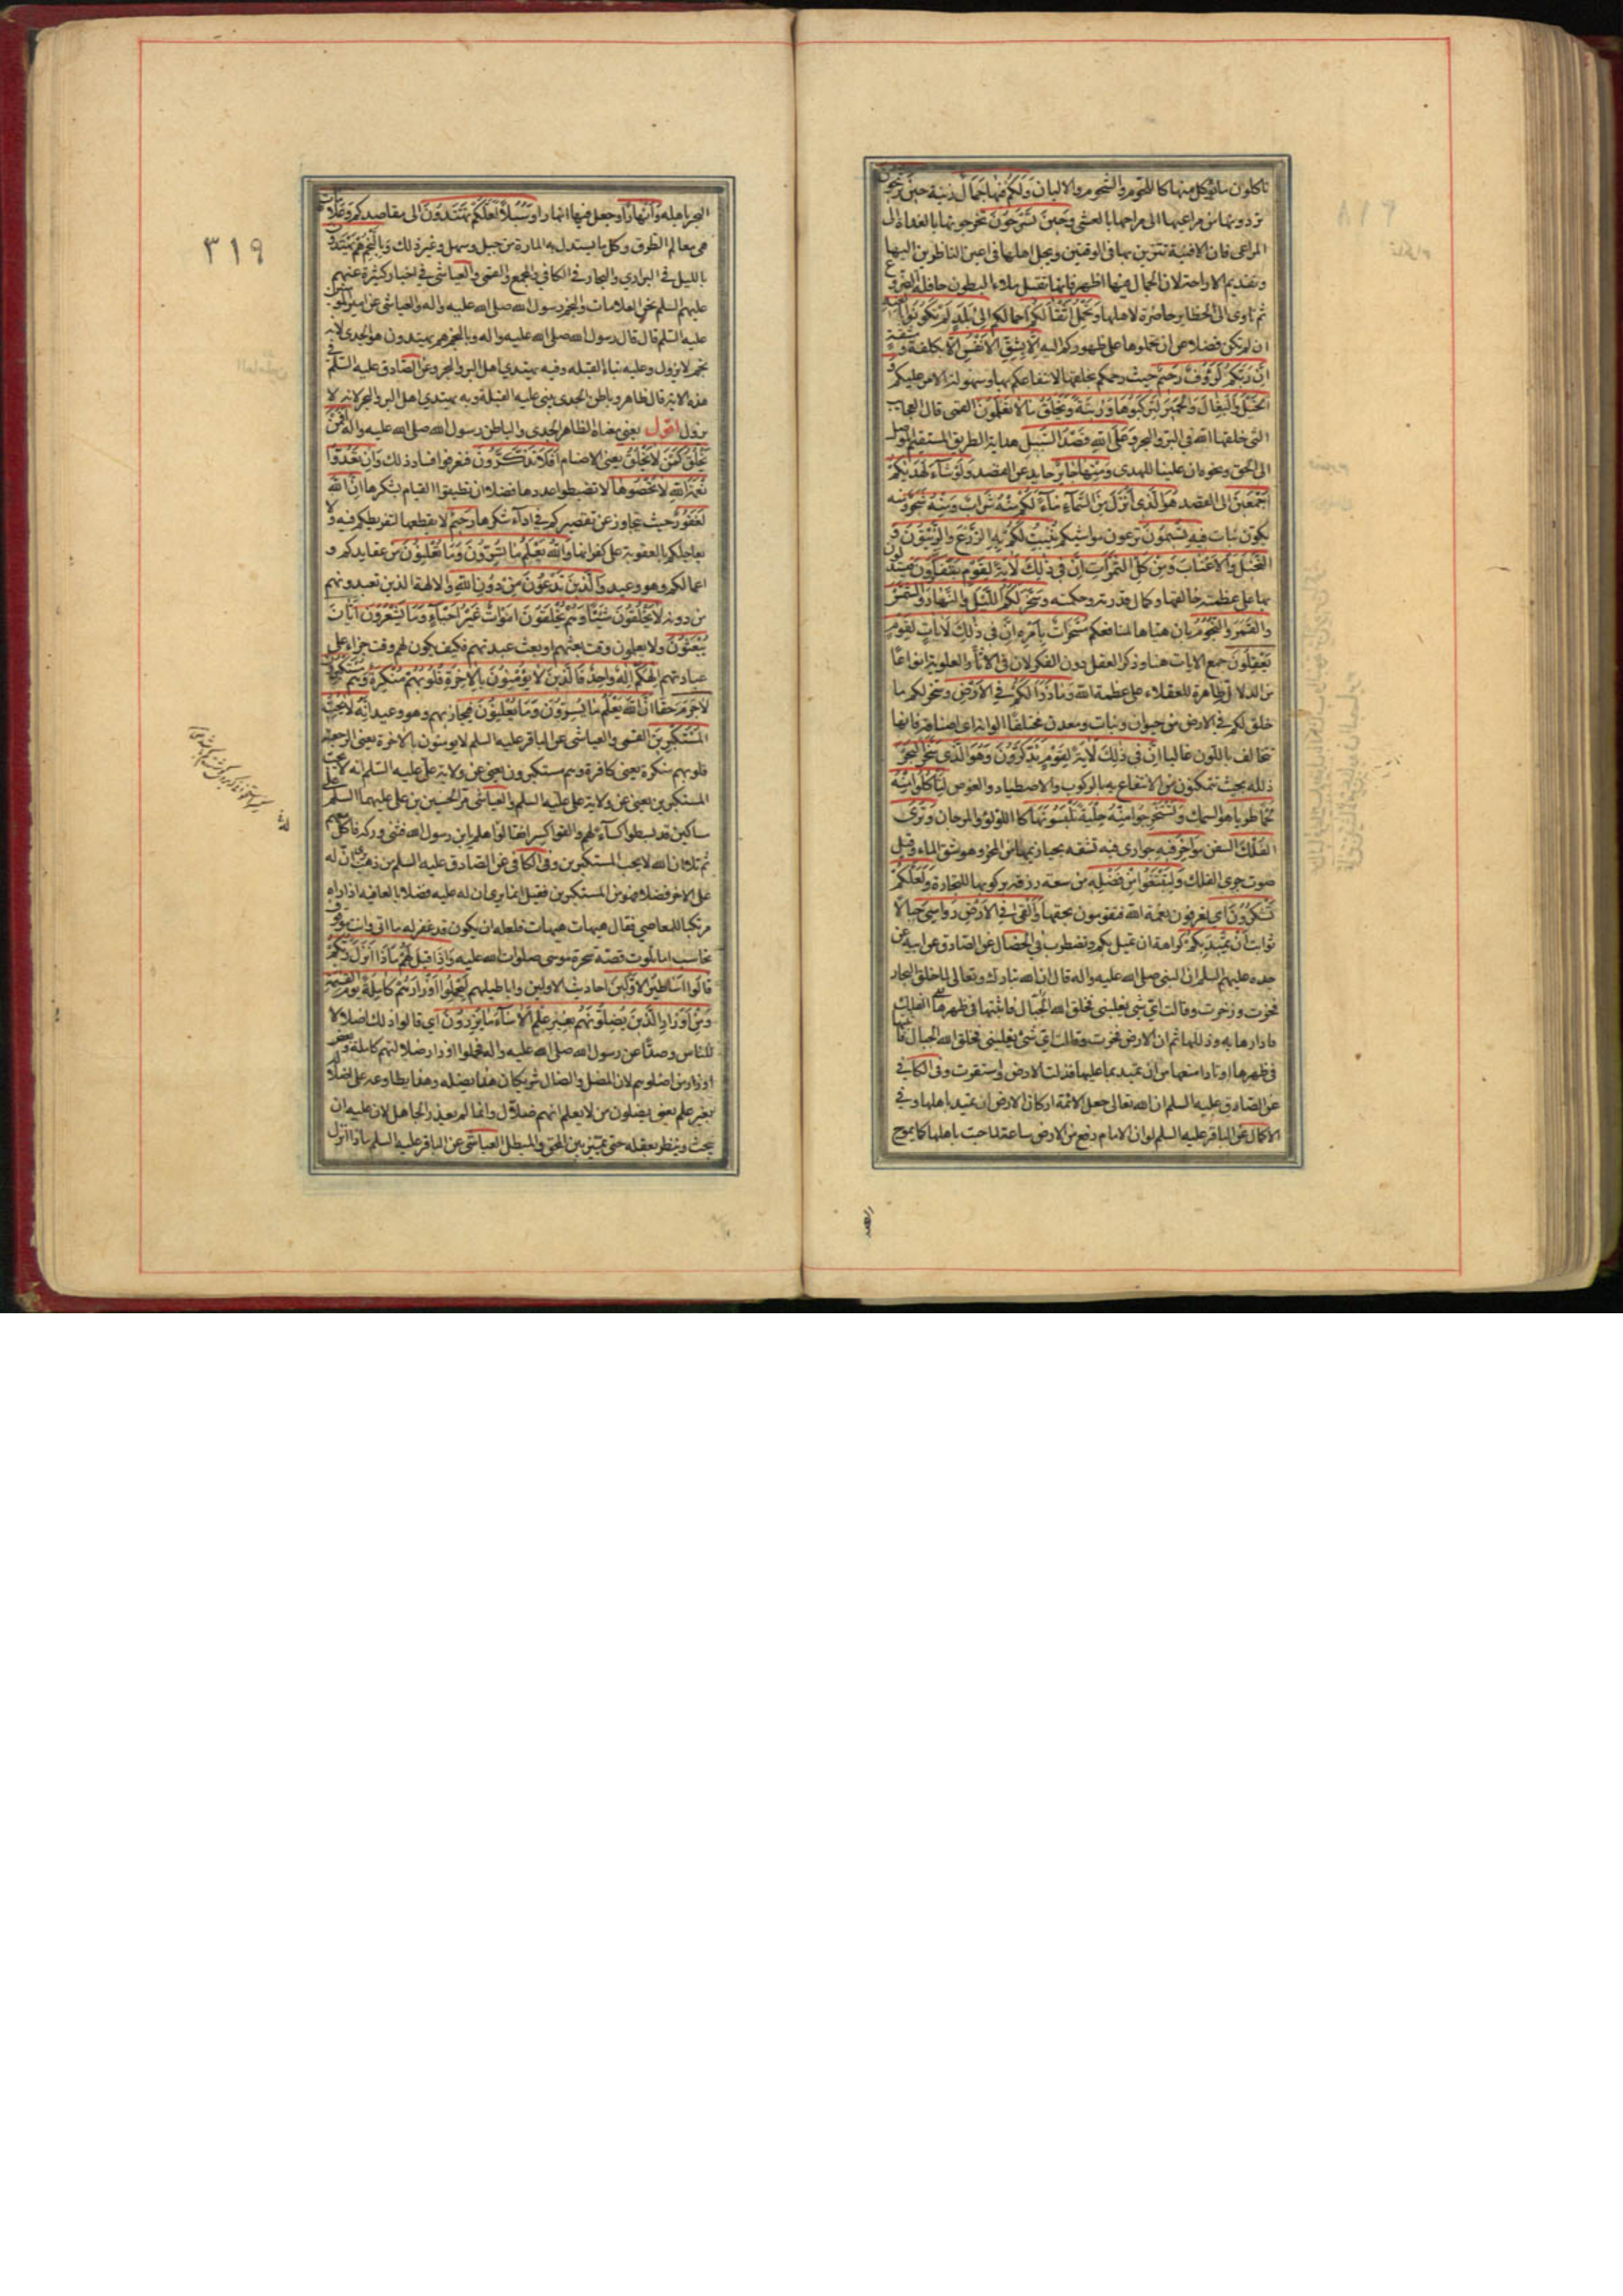 تاكلون ما يؤكل منها كاللحوم والشحوم والالبان ولكم فيها جمال زينة حين تريحون
تردونها من مراعيها الى مراحها بالعشى وحين تسرحون تخرجونها بالغداة الى
المراعى فان الافنية تتزين بها فى الوقتين ويجل اهلها فى اعين الناظرين اليها
وتقديم الاراحة لان الجمال فيها اظهر فانها تقبل ملاء البطون حافلة الضروع
ثم تاوى الى الحظاير حاضرة لاهلها وتحمل اثقالكم احمالكم الى بلد لم تكونوا بالغيه
ان لم تكن فضلا عن ان تحملوها على ظهوركم اليه الا بشق الانفس الا بكلفة ومشقة
ان ربكم لرؤف رحيم حيث رحمكم بخلقها لانتفاعكم بها وسهولة الامر عليكم و
الخيل والبغال والحمير لتركبوها وزينة ويخلق ما لا تعلمون القمى قال العجايب
التى خلقها الله فى البر والبحر وعلى الله قصد السبيل هداية الطريق المستقيم الموصل
الى الحق ونحوه ان علينا للهدى ومنها جاير حايد عن القصد ولو شاء لهديكم
اجمعين الى القصد هو الذى انزل من السماء ماء لكم منه شراب ومنه شجر ومنه
يكون نبات فيه تسيمون ترعون مواشيكم ينبت لكم به الزرع والزيتون و
النخيل والاعناب ومن كل الثمرات ان فى ذلك لاية لقوم يتفكرون فيستدلون
بها على عظمة خالقها وكمال قدرته وحكمته وسخر لكم الليل والنهار والشمس
والقمر والنجوم بان هياها لمنافعكم مسخرات بامره ان فى ذلك لايات لقوم
يعقلون جمع الايات هنا وذكر العقل دون الفكر لان فى الاثار العلوية انواعا
من الدلالة ظاهرة للعقلاء على عظمة الله وما ذرا لكم فى الارض وسخر لكم ما
خلق لكم فى الارض من حيوان ونبات ومعدن مختلفا الوانه اى اصنافه فانها
تتخالف باللون غالبا ان فى ذلك لاية لقوم يذكرون وهو الذى سخر البحر
ذلله بحيث تتمكنون من الانتفاع به بالركوب والاصطياد والغوص لتاكلوا منه
لحما طريا هو السمك وتستخرجوا منه حلية تلبسونها كاللؤلؤ والمرجان وترى
الفلك السفن مواخر فيه جوارى فيه تشقه بحيازيمها من المخر وهو شق الماء وقيل
صوت جرى الفلك ولتبتغوا من فضله من سعة رزقه بركوبها للتجارة ولعلكم
تشكرون اى تعرفون نعمة الله فتقومون بحقها والقى فى الارض رواسى جبالا
ثوابت ان تميد بكم كراهة ان تميل بكم وتضطرب فى الخصال عن الصادق عن ابيه عن
جده عليهم السلم ان النبى صلى الله عليه واله قال ان الله تبارك وتعالى لما خلق البحار
فخرت وزخرت وقالت اى شى يغلبنى فخلق الله الفلك
فادارها به وذللها ثم ان الارض فخرت وقالت اى شئ يغلبنى فخلق الله الجبال فاثبتها
فى ظهرها اوتادا منعها من ان تميد بما عليها فذلت الارض واستقرت وفى الكافى
عن الصادق عليه السلم ان الله تعالى جعل الائمة اركان الارض ان تميد باهلها وفى
الاكمال عن الباقر عليه السلم لو ان الامام رفع من الارض ساعة لماجت باهلها كما يموج
البحر باهله وانهارا وجعل فيها انهارا وسبلا لعلكم تهتدون الى مقاصدكم وعلامات
هى معالم الطرق وكل ما يستدل به المارة من جبل وسهل وغير ذلك وبالنجم هم يهتدون
بالليل فى البرارى والبحار فى الكافى والمجمع والقمى والعياشى فى اخبار كثيرة عنهم
عليهم السلم نحن العلامات والنجم رسول الله صلى الله عليه واله والعياشى عن امير المؤمنين
عليه السلم قال قال رسول الله صلى الله عليه واله وبالنجم هم يهتدون هو الجدى لانه
نجم لا يزول وعليه بناء القبلة وفيه يهتدى اهل البر والبحر وعن الصادق عليه السلم فى
هذه الاية قال ظاهر وباطن الجدى يبنى عليه القبلة وبه يهتدى اهل البر والبحر لانه لا
يزول اقول يعنى معناه الظاهر الجدى والباطن رسول الله صلى الله عليه واله افمن
يخلق كمن لا يخلق يعنى الاصنام افلا تذكرون فتعرفوا فساد ذلك وان تعدوا
نعمة الله لا تحصوها لا تضبطوا عددها فضلا ان تطيقوا القيام بشكرها ان الله
لغفور حيث يتجاوز عن تقصيركم فى اداء شكرها رحيم لا يقطعها لتفريطكم فيه ولا
يعاجلكم بالعقوبة على كفرانها والله يعلم ما تسرون وما تعلنون من عقايدكم و
اعمالكم وهو وعيد والذين تدعون من دون الله والالهة الذين تعبدونهم
من دونه لا يخلقون شيئا وهم يخلقون اموات غير احياء وما يشعرون ايان
يبعثون ولا يعلمون وقت بعثهم او بعث عبدتهم فكيف يكون لهم وقت جزاء على
عبادتهم الهكم اله واحد فالذين لا يؤمنون بالاخرة قلوبهم منكرة وهم مستكبرون
لا جرم حقا ان الله يعلم ما يسرون وما يعلنون فيجازيهم وهو وعيد انه لا يحب
المستكبرين القمى والعياشى عن الباقر عليه السلم لا يؤمنون بالاخرة يعنى الرجعة
قلوبهم منكرة يعنى كافرة وهم مستكبرون يعنى عن ولاية على عليه السلم انه لا يحب
المستكبرين يعنى عن ولاية على عليه السلم والعياشى مر الحسين بن على عليهما السلم على
مساكين قد بسطوا كساء لهم والقوا كسرا فقالوا هلم يابن رسول الله فثنى وركه فاكل معهم
ثم تلا ان الله لا يحب المستكبرين وفى الكافى عن الصادق عليه السلم من ذهب يرى ان له
على الاخر فضلا فهو من المستكبرين فقيل انما يرى ان له عليه فضلا بالعافيه اذا راه
مرتكبا للمعاصى فقال هيهات هيهات فلعله ان يكون قد غفر له ما اتى وانت موقوف
تحاسب اما تلوت قصة سحرة موسى صلوات الله عليه واذا قيل لهم ماذا انزل ربكم
قالوا اساطير الاولين احاديث الاولين واباطيلهم ليحملوا اوزارهم كاملة يوم القيمة
ومن اوزار الذين يضلونهم بغير علم الا ساء ما يزرون اى قالوا ذلك اضلالا
للناس وصدا عن رسول الله صلى الله عليه واله فحملوا اوزار ضلالتهم كاملة وبعض
اوزار من اضلوهم لان المضل والضال شريكان هذا يضله وهذا يطاوعه على اضلاله
بغير علم يعنى يضلون من لا يعلم انهم ضلال وانما لم يعذر الجاهل لان عليه ان
يبحث وينظر بعقله حتى يميز بين المحق والمبطل العياشى عن الباقر عليه السلم ماذا انزل
٣١٩